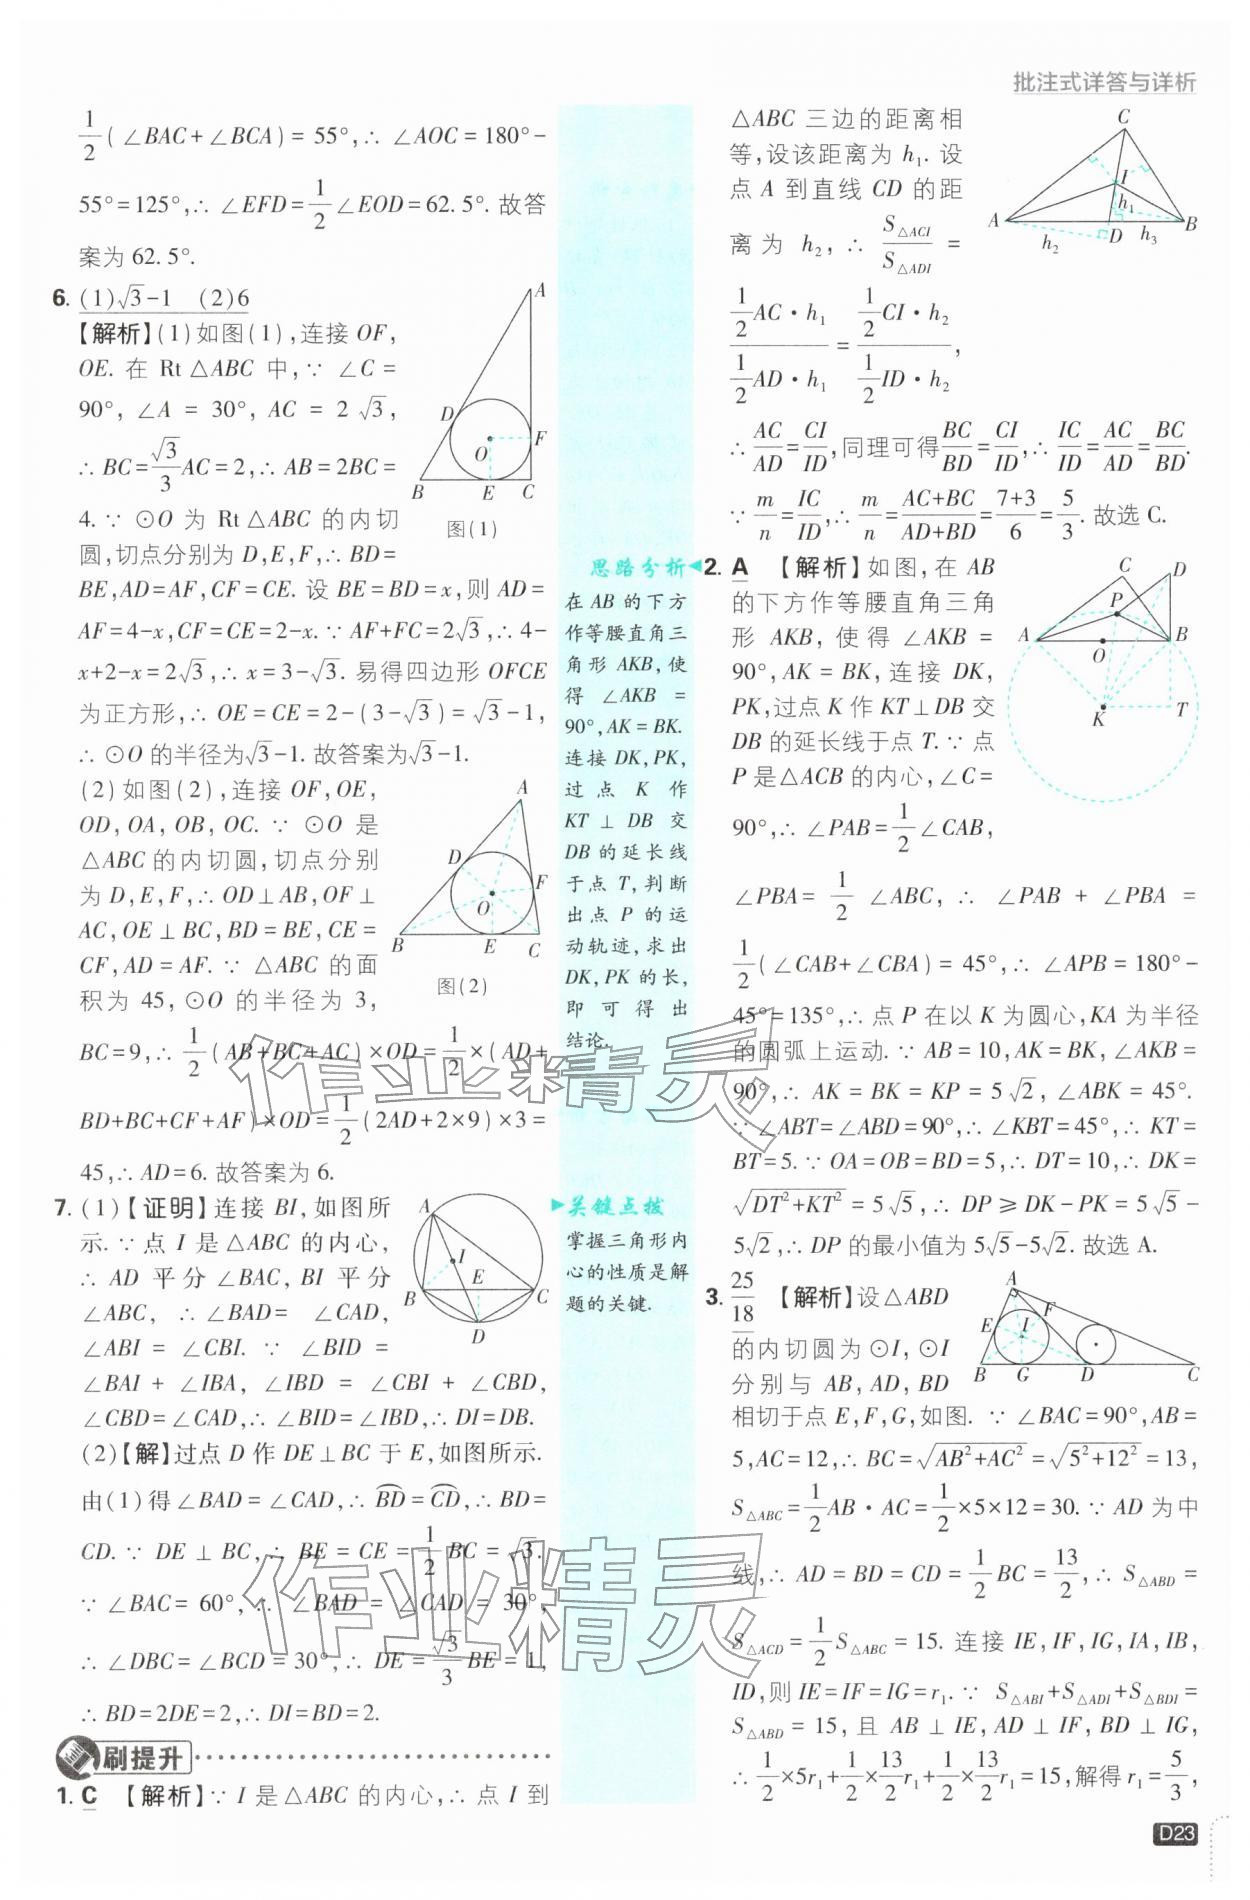 批注式详答与详析
1/2(∠BAC+∠BCA)=55°,∴ ∠AOC=180°-
55°=125°,∴ ∠EFD=1/2∠EOD=62.5°.故答
案为 62.5°.
6. (1)√3-1 (2)6
【解析】(1)如图(1),连接 OF,
OE. 在 Rt △ABC 中,∵ ∠C=
90°, ∠A = 30°, AC = 2√3,
∴ BC=√3/3AC=2,∴ AB=2BC=
4.∵ ⊙O 为 Rt △ABC 的内切
圆,切点分别为 D,E,F,∴ BD=
BE,AD=AF,CF=CE. 设 BE=BD=x,则 AD=
AF=4-x,CF=CE=2-x.∵ AF+FC=2√3,∴ 4-
x+2-x=2√3,∴ x=3-√3. 易得四边形 OFCE
为正方形,∴ OE=CE=2-(3-√3)=√3-1,
∴ ⊙O 的半径为√3-1.故答案为√3-1.
A
D
O
F
B
E
C
图(1)
(2)如图(2),连接 OF,OE,
OD,OA,OB,OC. ∵ ⊙O 是
△ABC 的内切圆,切点分别
为 D,E,F,∴ OD⊥AB,OF⊥
AC,OE⊥BC,BD=BE,CE=
CF,AD=AF.∵ △ABC 的面
积为 45,⊙O 的半径为 3,
BC=9,∴ 1/2(AB+BC+AC)×OD=1/2×(AD+
BD+BC+CF+AF)×OD=1/2(2AD+2×9)×3=
45,∴ AD=6.故答案为 6.
A
D
F
O
B
E
C
图(2)
7. (1)【证明】连接 BI,如图所
示.∵ 点 I 是△ABC 的内心,
∴ AD 平分∠BAC,BI 平分
∠ABC, ∴ ∠BAD= ∠CAD,
∠ABI = ∠CBI. ∵ ∠BID =
∠BAI + ∠IBA, ∠IBD = ∠CBI + ∠CBD,
∠CBD=∠CAD,∴ ∠BID=∠IBD,∴ DI=DB.
(2)【解】过点 D 作 DE⊥BC 于 E,如图所示.
由(1)得∠BAD=∠CAD,∴ BD⌒=CD⌒,∴ BD=
CD.∵ DE⊥BC,∴ BE=CE=1/2BC=√3.
∵ ∠BAC=60°,∴ ∠BAD=∠CAD=30°,
∴ ∠DBC=∠BCD=30°,∴ DE=√3/3BE=1,
∴ BD=2DE=2,∴ DI=BD=2.
A
I
E
B
C
D
刷提升
1. C 【解析】∵ I 是△ABC 的内心,∴ 点 I 到
思路分析
在 AB 的下方
作等腰直角三
角形 AKB,使
得 ∠AKB =
90°,AK=BK.
连接 DK,PK,
过 点 K 作
KT ⊥ DB 交
DB 的延长线
于点 T,判断
出点 P 的运
动轨迹,求出
DK,PK 的长,
即可得出
结论.
关键点拨
掌握三角形内
心的性质是解
题的关键.
△ABC 三边的距离相
等,设该距离为 h₁. 设
点 A 到直线 CD 的距
离为 h₂, ∴ S△ACI/S△ADI =
(1/2AC·h₁)/(1/2AD·h₁)=(1/2CI·h₂)/(1/2ID·h₂),
∴ AC/AD=CI/ID,同理可得BC/BD=CI/ID,∴ IC/ID=AC/AD=BC/BD.
∵ m/n=IC/ID,∴ m/n=(AC+BC)/(AD+BD)=(7+3)/6=5/3. 故选 C.
C
I
h₁
A
D
B
h₂
h₃
2. A 【解析】如图,在 AB
的下方作等腰直角三角
形 AKB, 使得 ∠AKB =
90°,AK=BK,连接 DK,
PK,过点 K 作 KT⊥DB 交
DB 的延长线于点 T.∵ 点
P 是△ACB 的内心,∠C=
90°,∴ ∠PAB=1/2∠CAB,
∠PBA= 1/2 ∠ABC, ∴ ∠PAB + ∠PBA =
1/2(∠CAB+∠CBA)=45°,∴ ∠APB=180°-
45°=135°,∴ 点 P 在以 K 为圆心,KA 为半径
的圆弧上运动.∵ AB=10,AK=BK,∠AKB=
90°,∴ AK = BK = KP = 5√2, ∠ABK = 45°.
∵ ∠ABT=∠ABD=90°,∴ ∠KBT=45°,∴ KT=
BT=5.∵ OA=OB=BD=5,∴ DT=10,∴ DK=
√(DT²+KT²)=5√5,∴ DP≥DK-PK=5√5-
5√2,∴ DP 的最小值为 5√5-5√2.故选 A.
C
D
P
A
O
B
K
T
3. 25/18 【解析】设△ABD
的内切圆为⊙I,⊙I
分别与 AB,AD,BD
相切于点 E,F,G,如图. ∵ ∠BAC=90°,AB=
5,AC=12,∴ BC=√(AB²+AC²)=√(5²+12²)=13,
S△ABC=1/2AB·AC=1/2×5×12=30.∵ AD 为中
线,∴ AD=BD=CD=1/2BC=13/2,∴ S△ABD=
S△ACD=1/2S△ABC=15. 连接 IE,IF,IG,IA,IB,
ID,则 IE=IF=IG=r₁.∵ S△ABI+S△ADI+S△BDI=
S△ABD=15,且 AB⊥IE,AD⊥IF,BD⊥IG,
∴ 1/2×5r₁+1/2×13/2r₁+1/2×13/2r₁=15,解得 r₁=5/3,
A
E
F
I
B
G
D
C
作业精灵
作业精灵
D23